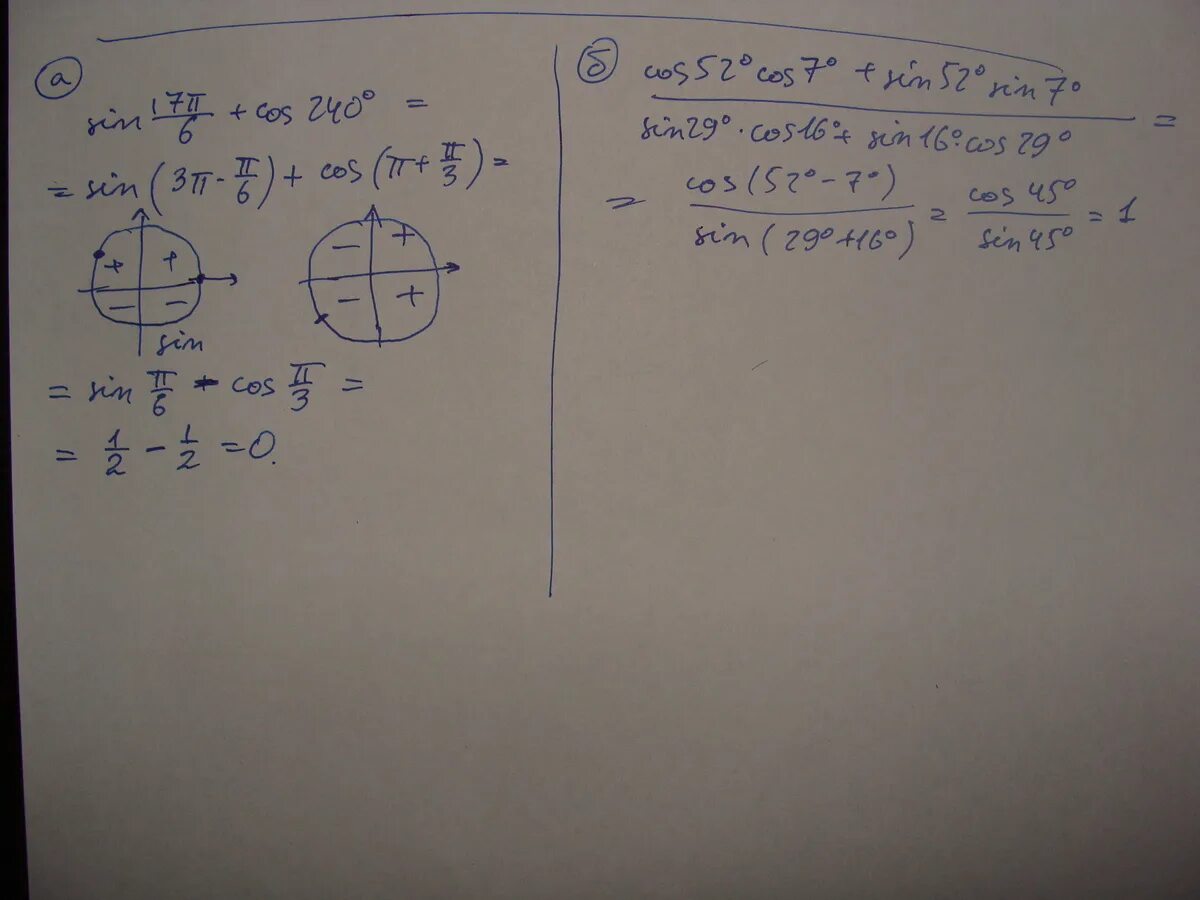 а
sin 17π/6 + cos 240° =
= sin (3π - π/6) + cos (π + π/3) =
+ + - -
sin
- + - +
= sin π/6 - cos π/3 =
= 1/2 - 1/2 = 0.
б
cos 52° cos 7° + sin 52° sin 7°
sin 29° · cos 16° + sin 16° · cos 29° =
= cos (52° - 7°) / sin (29° + 16°) = cos 45° / sin 45° = 1